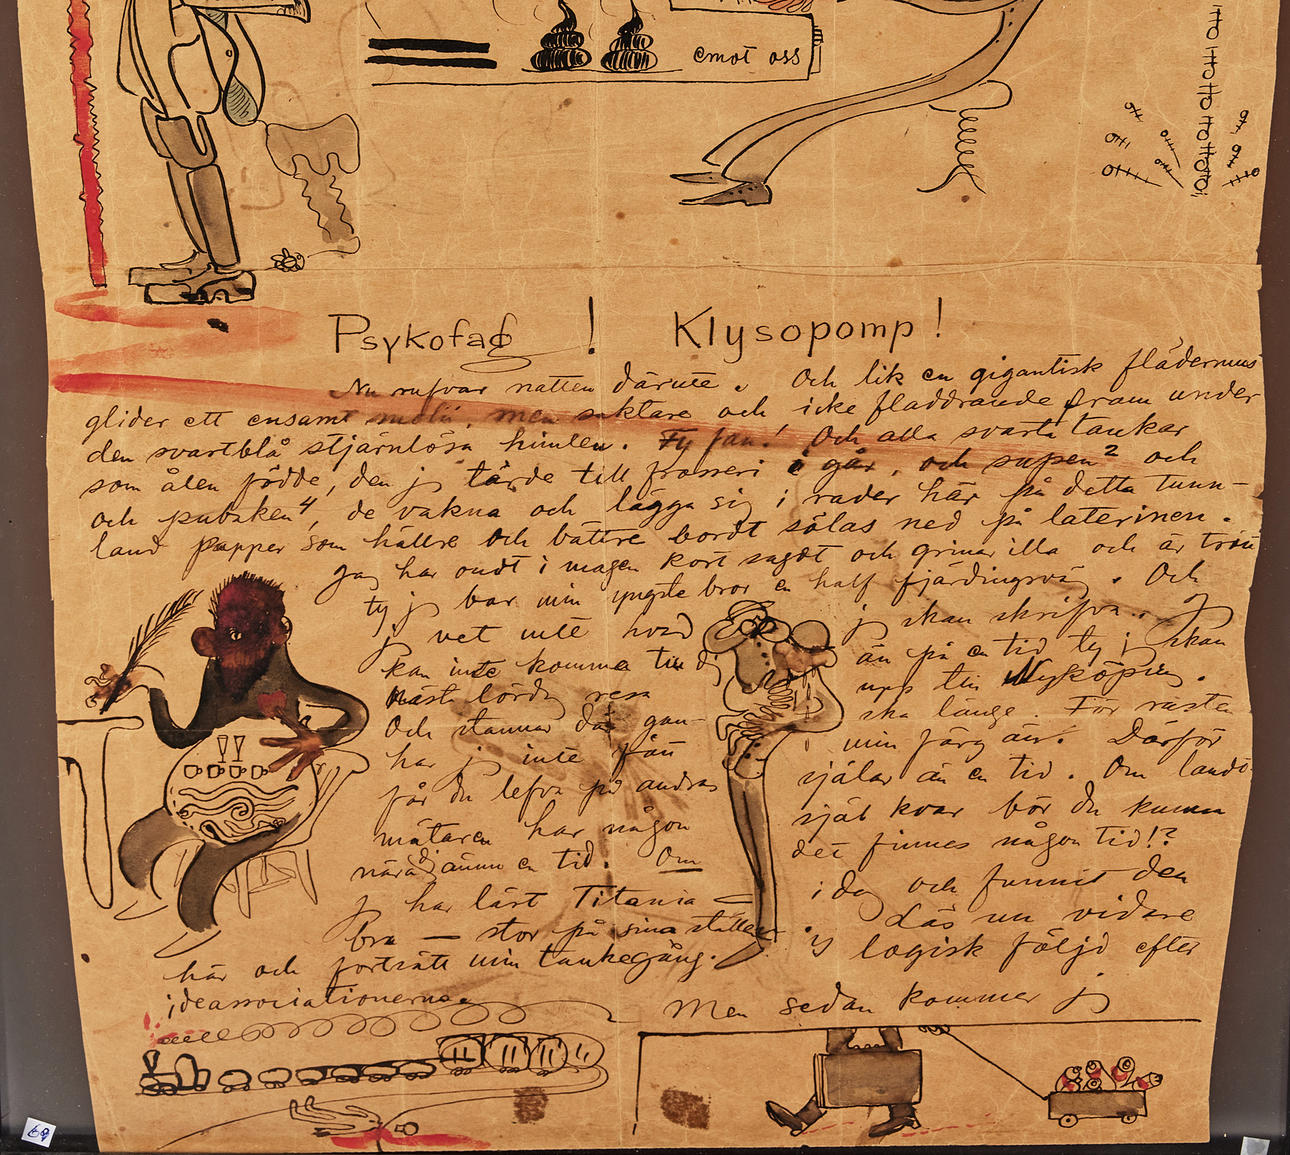 emot oss
Psykofag ! Klysopomp !
Nu rufvar natten därute. Och lik en gigantisk flädermus
glider ett ensamt moln, men saktare och icke fladdrande fram under
den svartblå stjärnlösa himlen. Fy fan! Och alla svarta tankar
som ålen födde, den j tärde till frosseri i går, och supen² och
och pubsken⁴, de vakna och lägga sig i rader här på detta tunn-
land papper som hällre och bättre bordt sålas ned på laterinen.
Jag har ondt i magen kort sagdt och grinar illa och är
ty j bar min yngste bror en half fjärdingsväg. Och
j vet inte hvad j skan skrifva. J
kan inte komma till än på en tid ty j skan
näst lörda resa upp till Nyköping.
Och stannar där gan- ska länge. För rästen
har j inte fån min färg än. Därför
får du lefva på andras själar än en tid. Om lands-
mätaren har någon själ kvar bör du kunna
nära dj ännu en tid. Om det finnes någon tid!?
j har läst Titania i da och funnit den
bra — stor på sina ställen. Läs nu vidare
här och fortsätt min tankegång. I logisk följd efter
ideassociationerna.
Men sedan kommer j
69